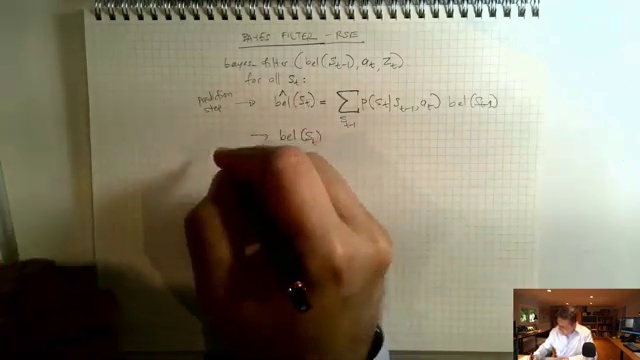 BAYES FILTER - RSE
bayes filter (bel(Sₜ₋₁), aₜ, Zₜ)
for all Sₜ:
prediction step → bel̂(Sₜ) = ∑ₛₜ₋₁ p(Sₜ|Sₜ₋₁, aₜ) bel(Sₜ₋₁)
→ bel(Sₜ)